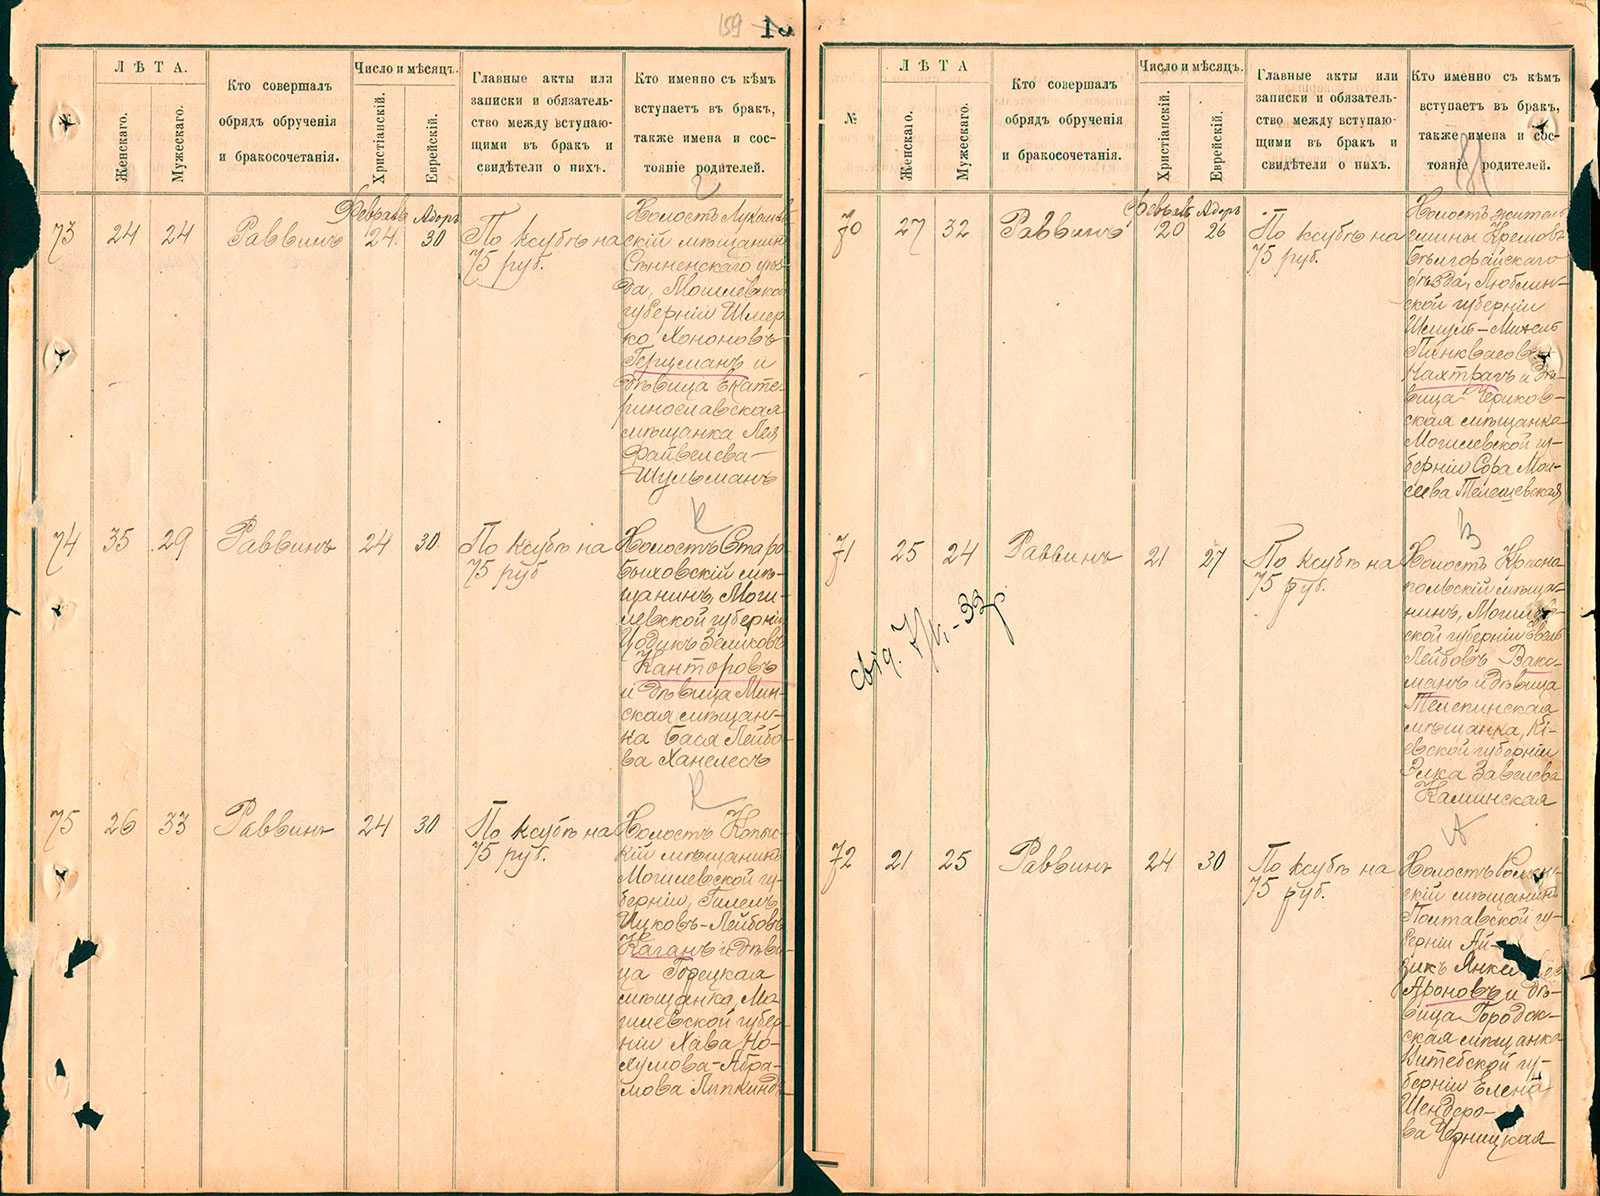 159
ЛѢТА.
Женскаго.
Мужескаго.
Кто совершалъ
обрядъ обрученія
и бракосочетанія.
Число и мѣсяцъ.
Христіанскій.
Еврейскій.
Главные акты или
записки и обязатель-
ство между вступаю-
щими въ бракъ и
свидѣтели о нихъ.
Кто именно съ кѣмъ
вступаетъ въ бракъ,
также имена и сос-
тояніе родителей.
Февраль Адоръ
73 24 24 Раввинъ 24 30
По ксубѣ на
75 руб.
Холостъ Лукомль-
скій мѣщанинъ
Сѣнненскаго уѣз-
да, Могилевской
губерніи Шмер-
ко Хононовъ
Герцманъ и
дѣвица Екате-
ринославская
мѣщанка Лея
Файвелева-
Шульманъ
К
74 35 29 Раввинъ 24 30
По ксубѣ на
75 руб
Холостъ Старо-
быховскій мѣ-
щанинъ, Моги-
левской губерніи
Цодикъ Зеликовъ
Канторовъ
и дѣвица Мин-
ская мѣщан-
ка Бася Лейбо-
ва Ханелесъ
К
75 26 33 Раввинъ 24 30
По ксубѣ на
75 руб.
Холостъ Копыс-
кій мѣщанинъ
Могилевской гу-
берніи, Гилель
Ицковъ-Лейбовъ
Каганъ и дѣви-
ца Горецкая
мѣщанка, Мо-
гилевской губер-
ніи Хава Но-
хумова-Абра-
мова Липкиндъ
№
ЛѢТА
Женскаго.
Мужескаго.
Кто совершалъ
обрядъ обрученія
и бракосочетанія.
Число и мѣсяцъ.
Христіанскій.
Еврейскій.
Главные акты или
записки и обязатель-
ство между вступаю-
щими въ бракъ и
свидѣтели о нихъ.
Кто именно съ кѣмъ
вступаетъ въ бракъ,
также имена и сос-
тояніе родителей.
Февраль Адоръ
70 27 32 Раввинъ 20 26
По ксубѣ на
75 руб.
Холостъ житель
гмины Кремово
Бѣлгорайскаго
уѣзда, Люблин-
ской губерніи
Шмуль-Михель
Пинквасовъ
Нахтрагъ и дѣ-
вица Чериков-
ская мѣщанка
Могилевской гу-
берніи Сора Мои-
сеева Телешевская
В
71 25 24 Раввинъ 21 27
По ксубѣ на
75 руб.
Холостъ Красно-
польскій мѣща-
нинъ, Могилев-
ской губерніи
Лейбовъ Вакс-
манъ и дѣвица
Телепинская
мѣщанка, Кі-
евской губерніи
Элка Завелева
Каминская
А
72 21 25 Раввинъ 24 30
По ксубѣ на
75 руб.
Холостъ Ромен-
скій мѣщанинъ
Полтавской гу-
берніи Ай-
зикъ Янкелевъ
Ароновъ и дѣ-
вица Городок-
ская мѣщанка
Витебской гу-
берніи Елена
Шендеро-
ва Черницкая